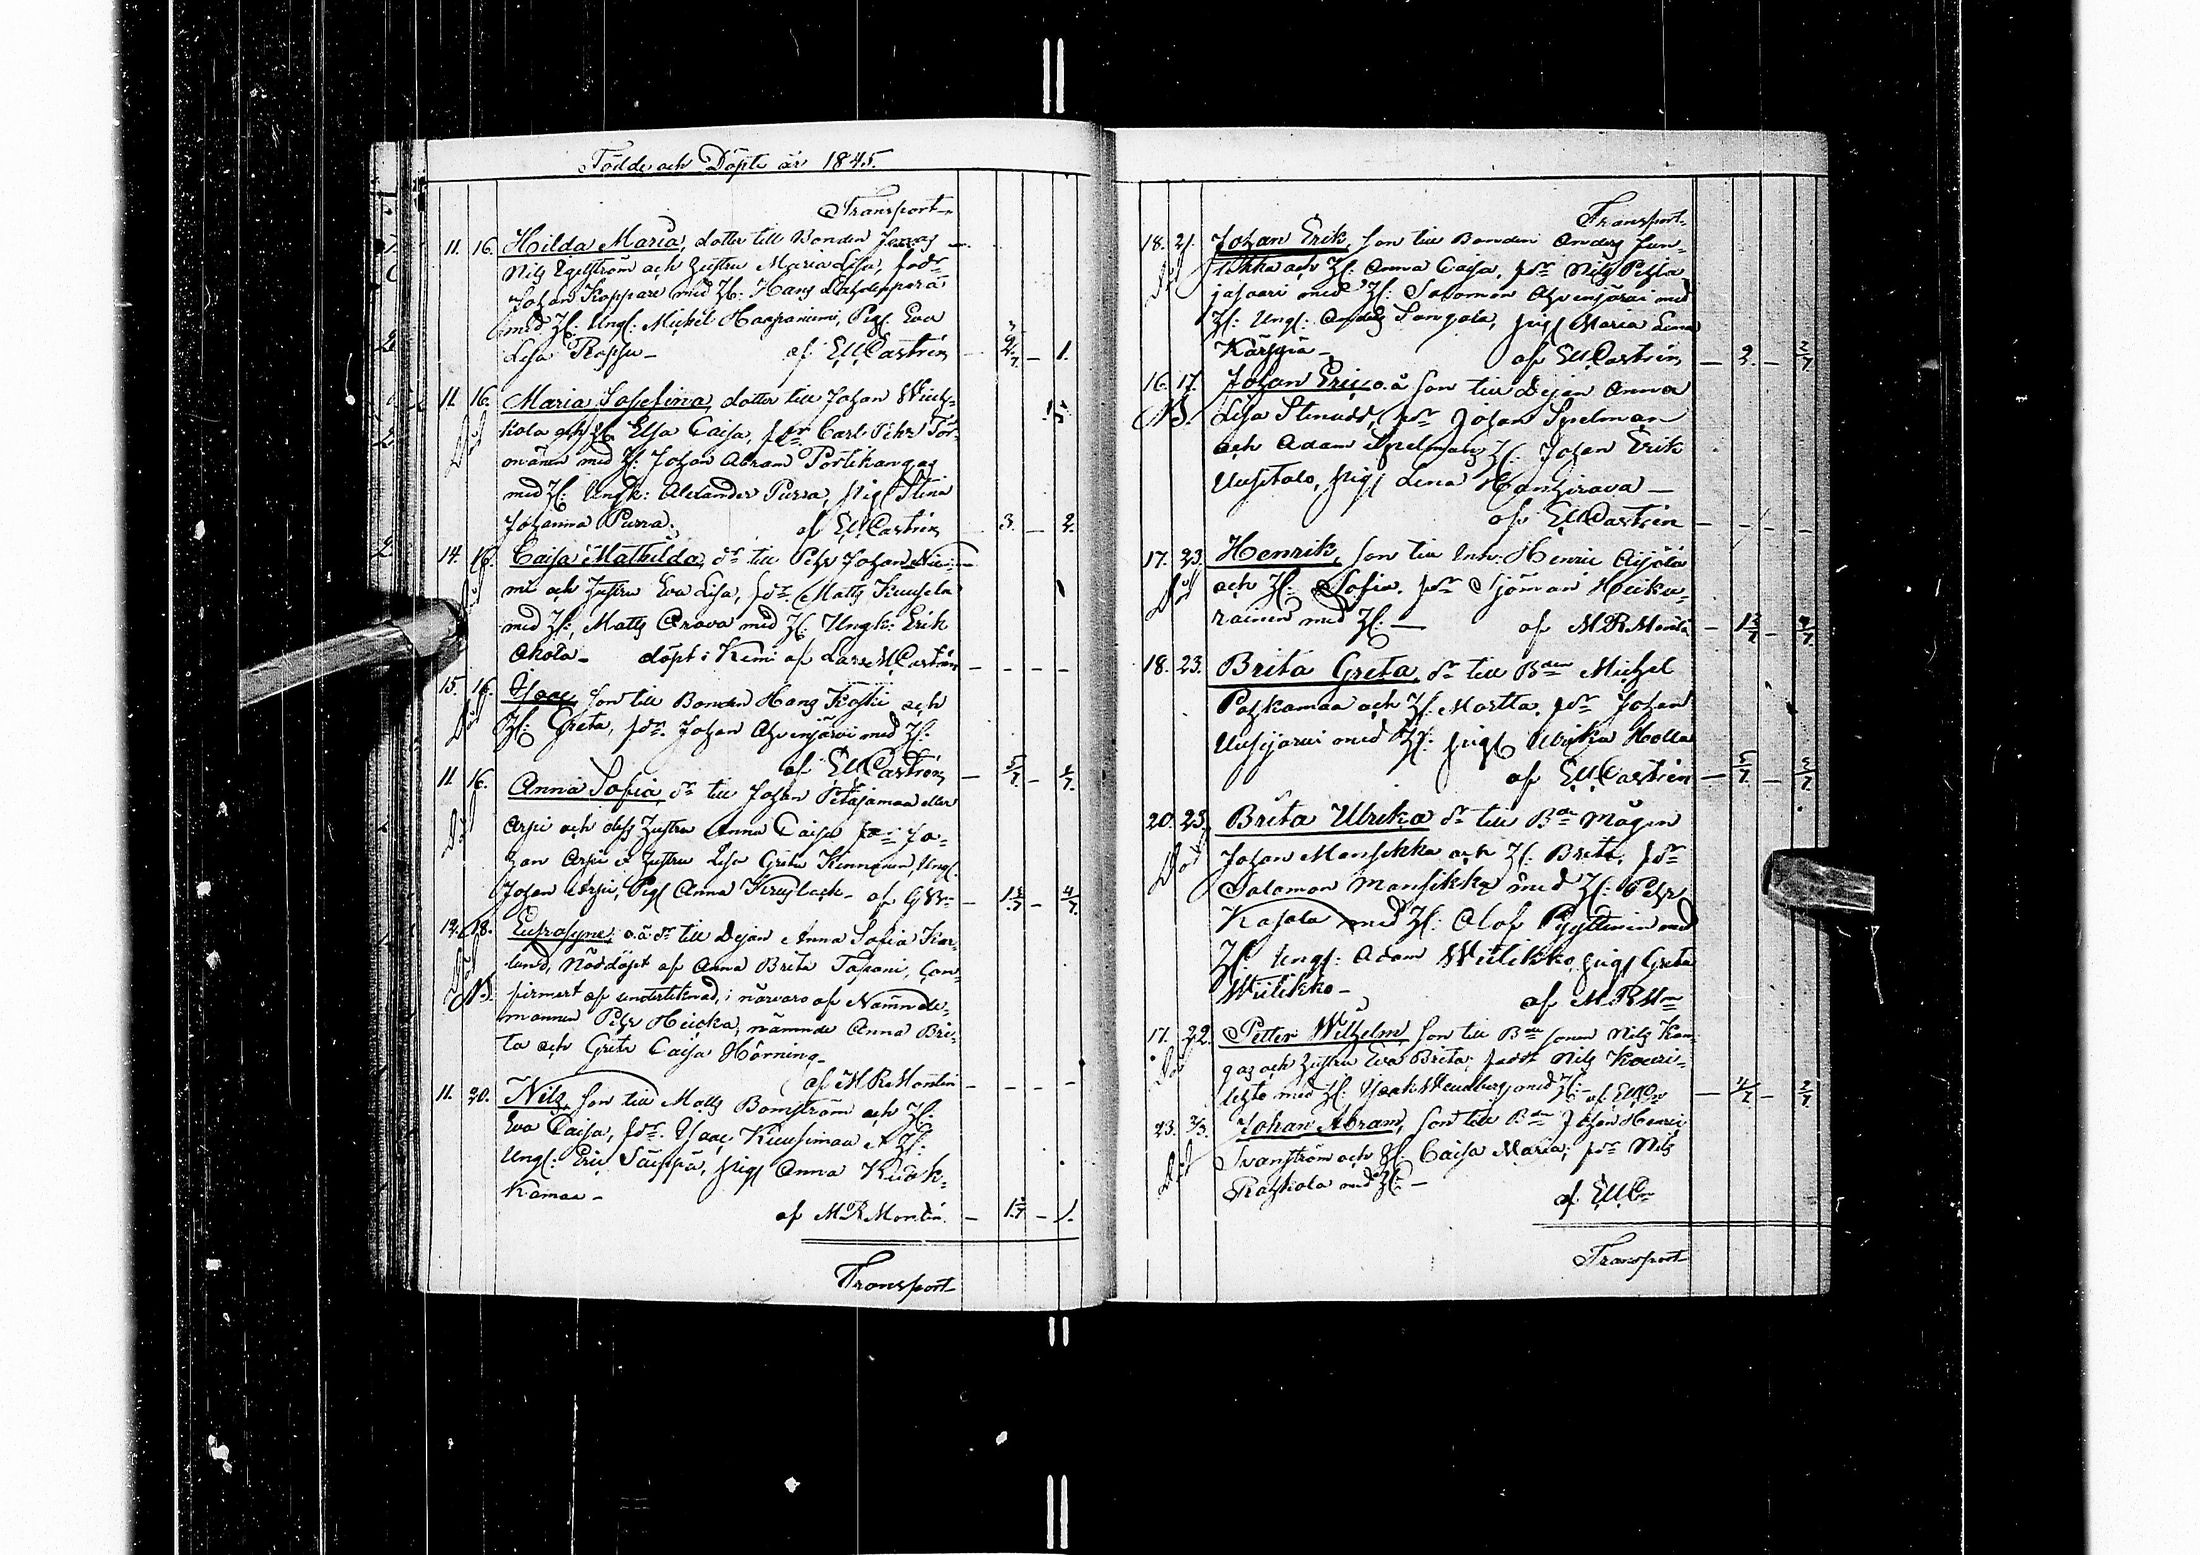 Födde och Döpte år 1845.
Transport
11. 16. Hilda Maria, dotter till Bonden
Nils Egelström och hustru Maria Lisa, fadr
Johan Koppare med H: Hans
med H: Ungk: Michel Haapaniemi, Pig. Eva
Lisa Rapsu - af EM Castrén - 1.
11. 16. Maria Josefina, dotter till Johan Wiets-
kola och H: Elsa Caisa, fdr Carl Pehr Tör-
mänen med H: Johan Abram Portikangas
Död med H: Ungk: Alexander Purra, Pig. Stina
Johanna Purra. af EM Castrén - 3. - 2.
14. 16. Caisa Mathilda, dr till Pehr Johan Nie-
mi och Hustru Eva Lisa, fdr. Matts Kuusela
Död med H:, Matts Orava med H: Ungk: Erik
Ahola - döpt i Kemi af Lars M Castrén - - -
15. 16. Isaac, son till Bonden Hans Koski och
Död H: Greta, fdr. Johan Ahvenjärvi med H:
af EM Castrén - 5/7 - 1/7
11. 16. Anna Sofia, dr till Johan Petäjämaa eller
Död Arpi och dess Hustru Anna Caisa fdr Jo-
han Arpi o Hustru Lisa Greta Kinnunen, Ungk.
Johan Arpi, Pig. Anna af
14. 18. Eufrosyne, o.ä dr till Dejan Anna Sofia Kar-
Död lund, Nöddöpt af Anna Brita Tapani, Con-
NB. firmert af underteknad, i närvaro af Nämnde-
mannen Pehr Heicka, nämnde Anna Bri-
ta och Greta Caisa Hörning -
af M R Montin - - - -
11. 20. Nils, son till Matts Bomström och H:
Eva Caisa, fdr. Isaac Kuusimaa o H:
Ungk: Eric Säippä, Pig Anna Kuak-
kamaa -
af M R Montin. - 1. -
Transport
Transport
18. 21. Johan Erik, son till Bonden Anders Jun-
tikka och H: Anna Caisa, fdr Nils Pehla-
jasaari med H: Salomon Ahvenjärvi med
H: Ungk: Anders Sangala, Pig Maria Lena
Kärppä - af EM Castrén - 2. - 2/7
16. 17. Johan Eric, o.ä son till Dejan Anna
NB. Lisa Stenudd, fdr Johan Spelman
och Adam Spelman, H: Johan Erik
Uusitalo, Pig Lena Hanhirova -
af EM Castrén - - - -
17. 23. Henrik, son till Inh. Henric Äijälä
Död och H: Sofia. fdr Sjöman Heiku-
rainen med H: - af M R Montin -
18. 23. Brita Greta, dr till Bden Michel
Pahkamaa och H: Martta, fdr Johan
Uusijärvi med H: Pig Ulrika Holla
af EM Castrén - 5/7 - 2/7
20. 23. Brita Ulrika dr till Bde Mågen
Död Johan Mansikka och H: Brita, fdr
Salomon Mansikka med H: Pehr
Kasala med H: Olof Pyyttinen med
H: Ungk: Adam Wiilikko, Pig Greta
Wiilikko - af M. R. Mn
17. 22. Petter Wilhelm, son till Bde sonen Nils Kan-
Död gas och Hustru Eva Brita, faddr Nils Kauri-
lehto med H: Isaak med H: - af EMCn - 4/7 - 2/7
23. 2/3. Johan Abram, son till Bden Johan Henric
Död Svanström och H: Caisa Maria, fdr Nils
Rahkola med H: -
af EMCn
Transport